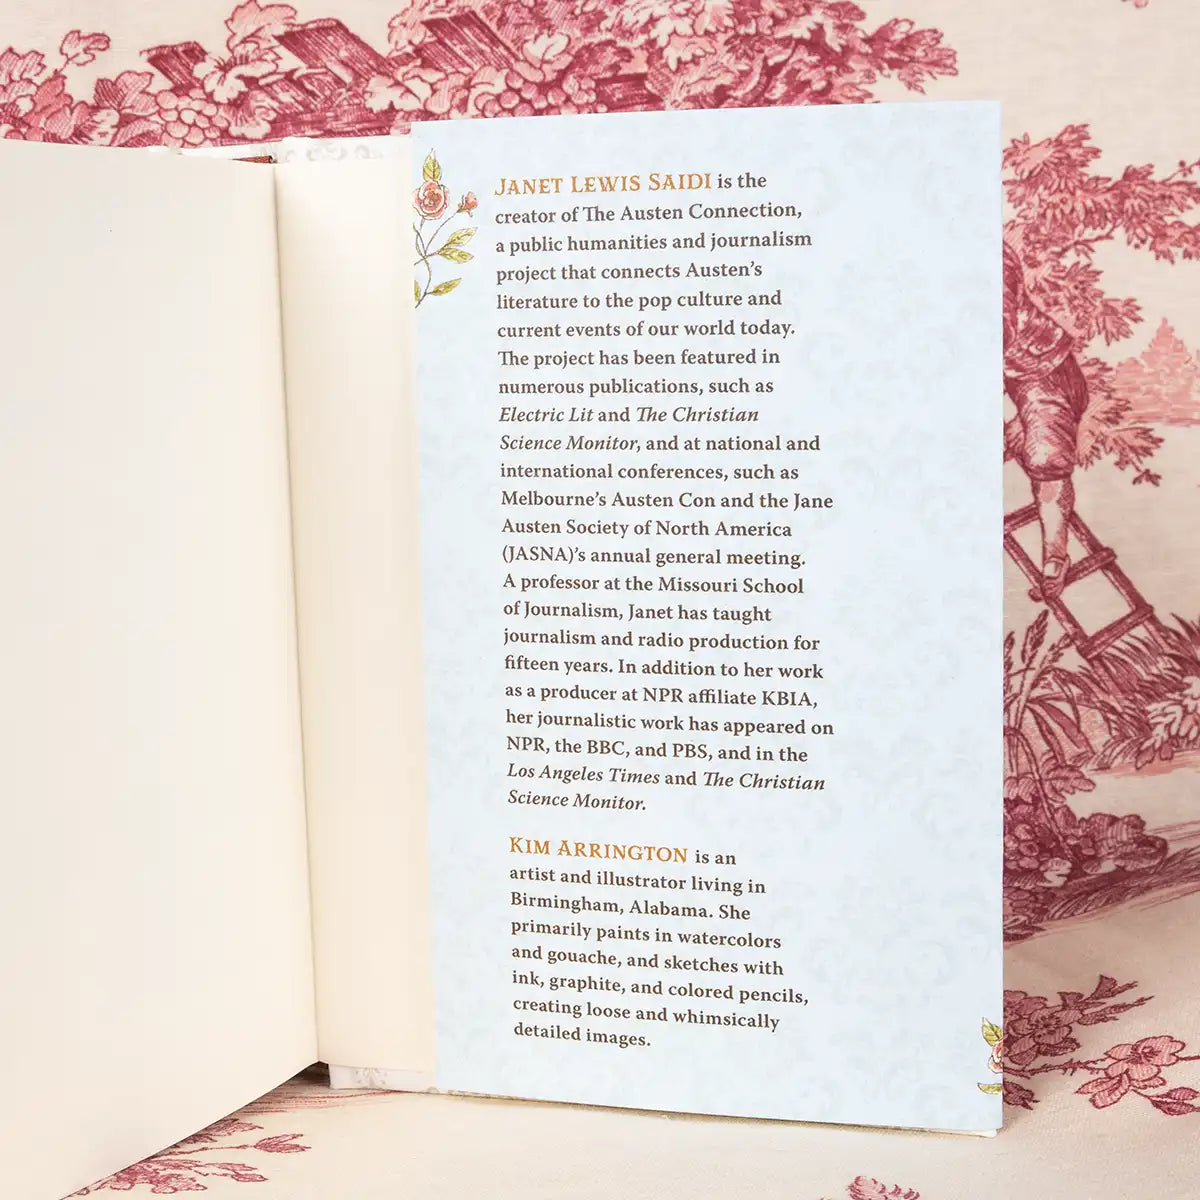 JANET LEWIS SAIDI is the
creator of The Austen Connection,
a public humanities and journalism
project that connects Austen's
literature to the pop culture and
current events of our world today.
The project has been featured in
numerous publications, such as
Electric Lit and The Christian
Science Monitor, and at national and
international conferences, such as
Melbourne's Austen Con and the Jane
Austen Society of North America
(JASNA)'s annual general meeting.
A professor at the Missouri School
of Journalism, Janet has taught
journalism and radio production for
fifteen years. In addition to her work
as a producer at NPR affiliate KBIA,
her journalistic work has appeared on
NPR, the BBC, and PBS, and in the
Los Angeles Times and The Christian
Science Monitor.
KIM ARRINGTON is an
artist and illustrator living in
Birmingham, Alabama. She
primarily paints in watercolors
and gouache, and sketches with
ink, graphite, and colored pencils,
creating loose and whimsically
detailed images.